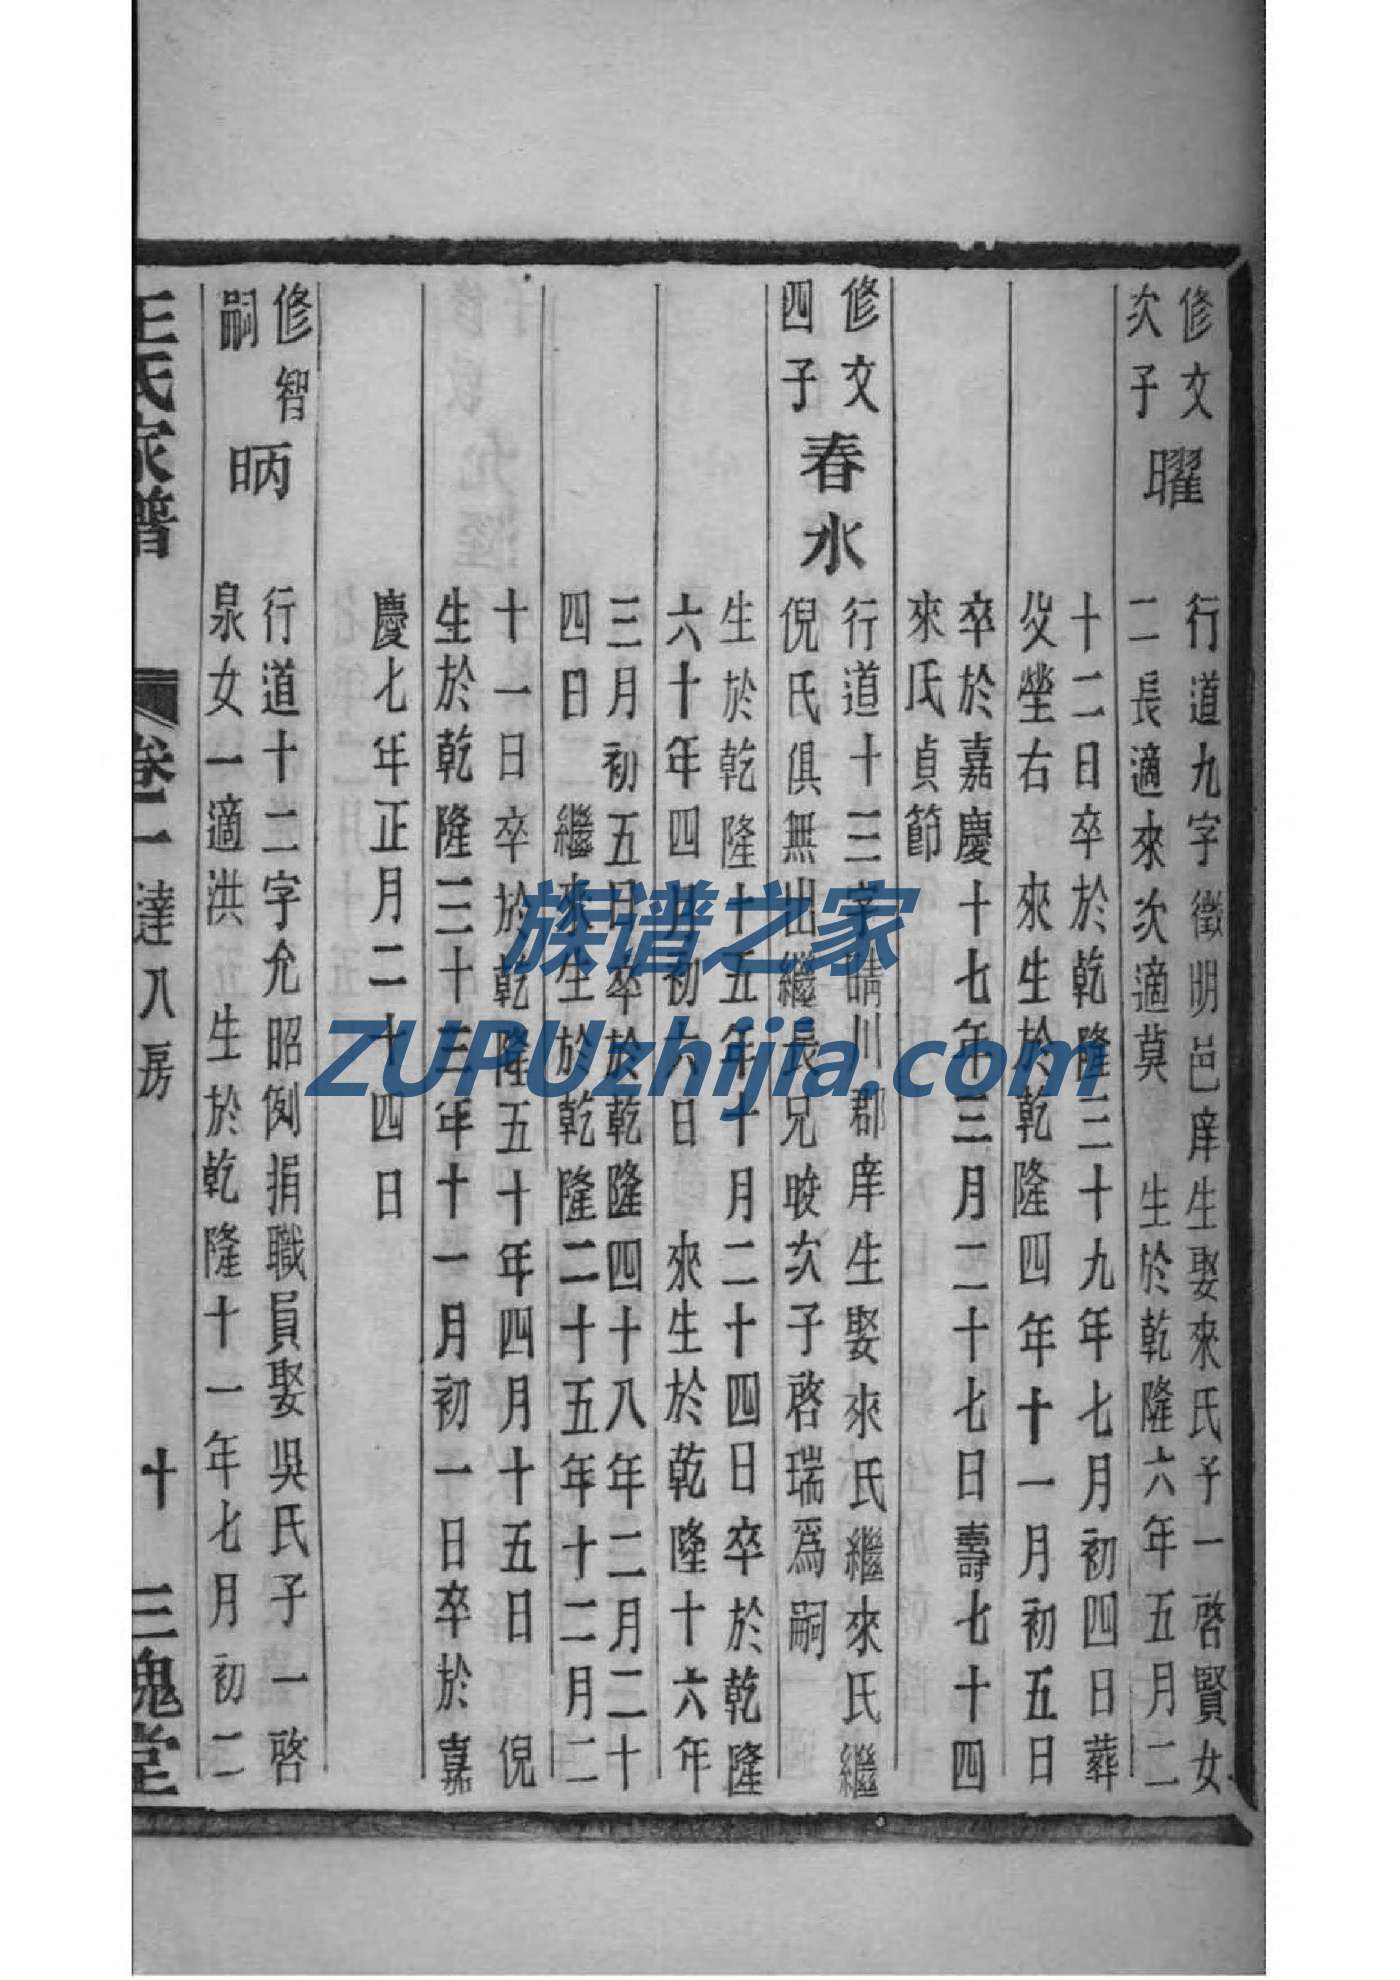 修文
次子
曜
行道九字徵明邑庠生娶來氏子一啓賢女
二長適來次適莫　生於乾隆六年五月二
十二日卒於乾隆三十九年七月初四日葬
父塋右　來生於乾隆四年十一月初五日
卒於嘉慶十七年三月二十七日壽七十四
來氏貞節
修文
四子
春水
行道十三字晴川郡庠生娶來氏繼來氏繼
倪氏俱無出繼長兄晙次子啓瑞爲嗣
生於乾隆十五年十月二十四日卒於乾隆
六十年四月初六日　來生於乾隆十六年
三月初五日卒於乾隆四十八年二月二十
四日　繼來生於乾隆二十五年十二月二
十一日卒於乾隆五十年四月十五日　倪
生於乾隆三十三年十一月初一日卒於嘉
慶七年正月二十四日
修智
嗣
昞
行道十二字允昭例捐職員娶吳氏子一啓
泉女一適洪　生於乾隆十一年七月初二
王氏家譜
卷一
達八房
十
三槐堂
族谱之家
ZUPUzhijia.com